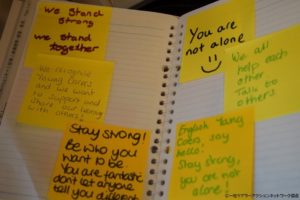 We Stand
Strong
we stand
together
We recognise
Young Carers
and we want
to support and
share our learning
with others!
Stay strong!
Be who you
want to be.
You are fantastic
don't let anyone
tell you different
You are
not alone
We all
help each
other
Talk to
others.
English Young
Carers, say
hello!
Stay strong,
you are not
alone!